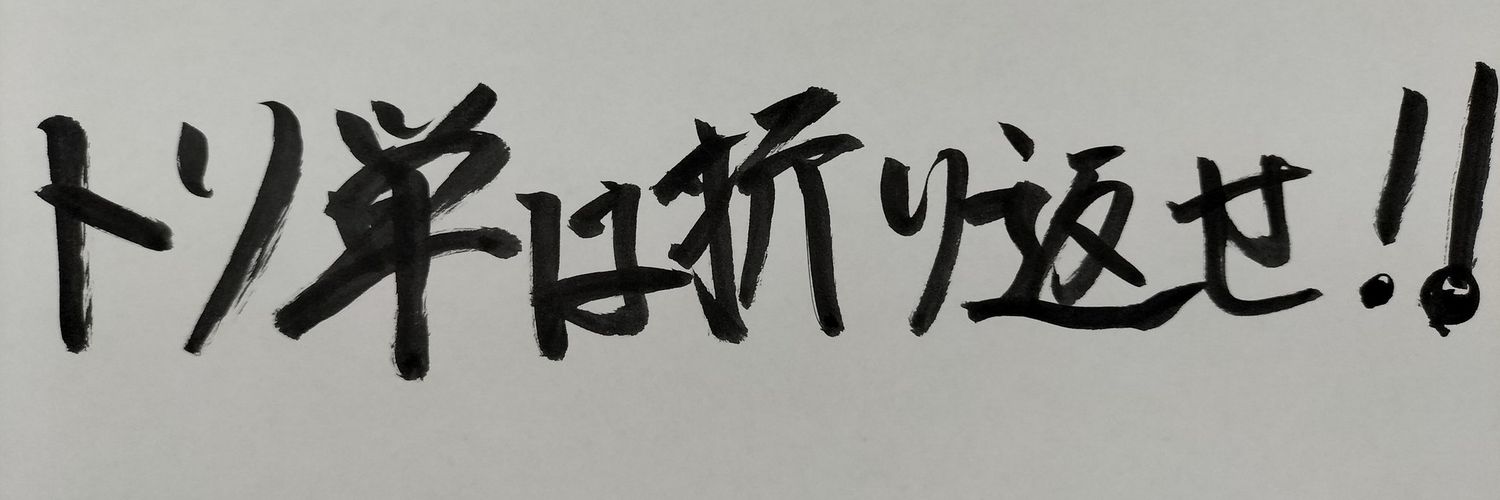 トリ単は折り返せ!!